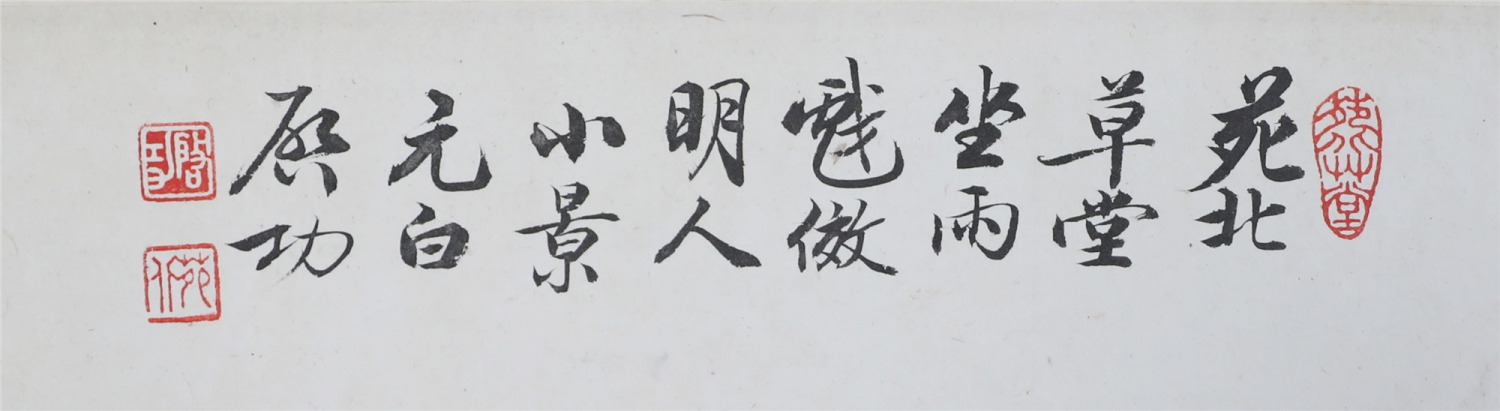 苑北
草堂
坐雨
戲倣
明人
小景
元白
啓功
啓功